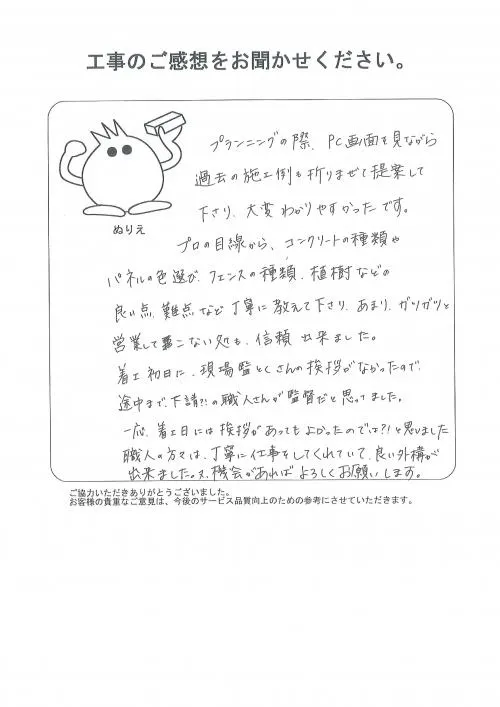 工事のご感想をお聞かせください。
ぬりえ
プランニングの際、PC画面を見ながら
過去の施工例も折りまぜて提案して
下さり、大変わかりやすかったです。
プロの目線から、コンクリートの種類や
パネルの色選び、フェンスの種類、植樹などの
良い点、難点など丁寧に教えて下さり、あまり、ガツガツと
営業して こない処も、信頼出来ました。
着工初日に、現場監とくさんの挨拶がなかったので、
途中まで、下請?!の職人さんが監督だと思ってました。
一応、着工日には挨拶があってもよかったのでは?!と思いました
職人の方々は、丁寧に仕事をしてくれていて、良い外構が
出来ました。又、機会があればよろしくお願いします。
ご協力いただきありがとうございました。
お客様の貴重なご意見は、今後のサービス品質向上のための参考にさせていただきます。